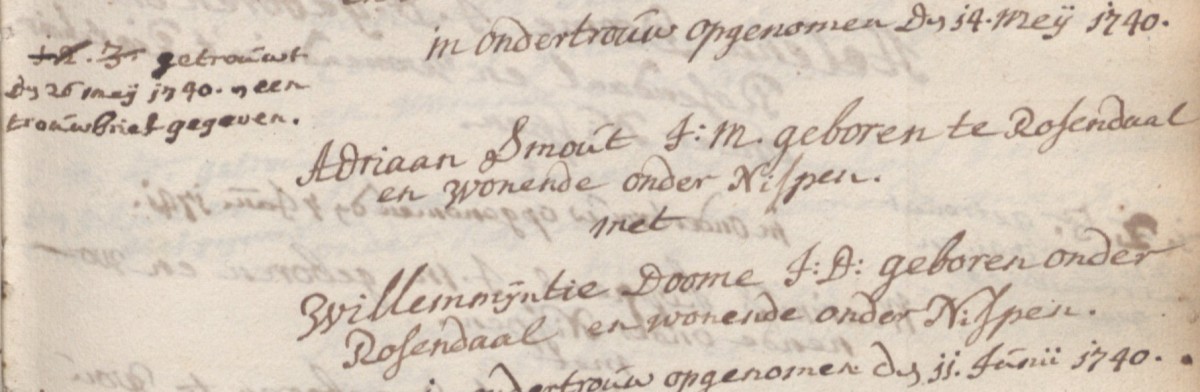 in ondertrouw opgenomen dn 14. meÿ 1740.
getrouwt
dn 26 meij 1740. een
trouwbrief gegeven.
Adriaan Smout J: M. geboren te Rosendaal
en wonende onder Nispen.
met
Willemmÿntie Doome J: D: geboren onder
Rosendaal en wonende onder Nispen.
ondertrouw opgenomen dn 11. Junii 1740.